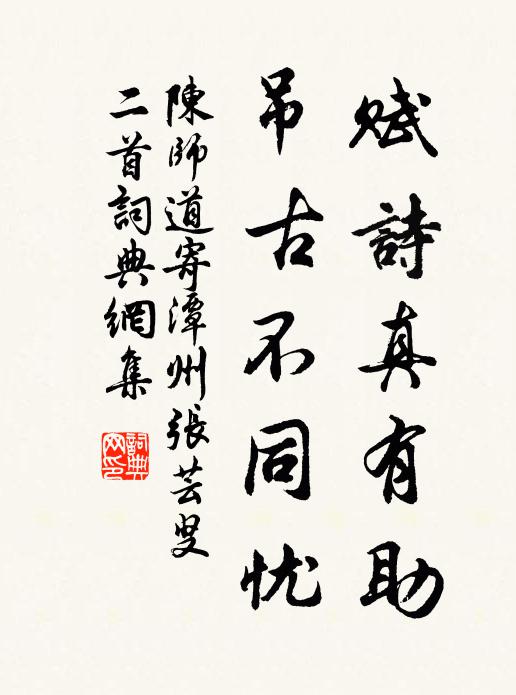 赋詩真有助
吊古不同忧
陳師道寄潭州張芸叟
二首詞典網集
詞典
网印